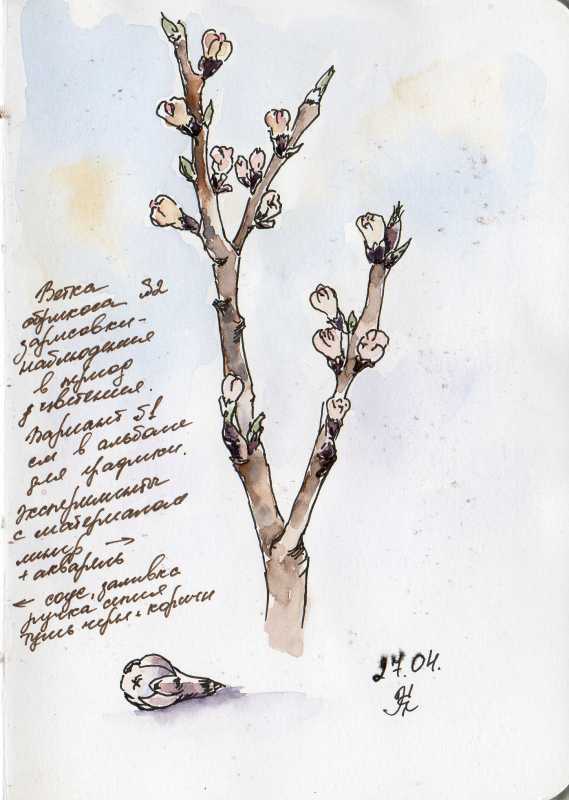 Ветка
абрикоса №2
зарисовки-
наблюдения
в период
цветения.
Вариант №1
см в альбоме
для графики.
Эксперименты
с материалом
линер →
+ акварель
← соус, заливка
ручка сепия
тушь черн + коричн
27.04.